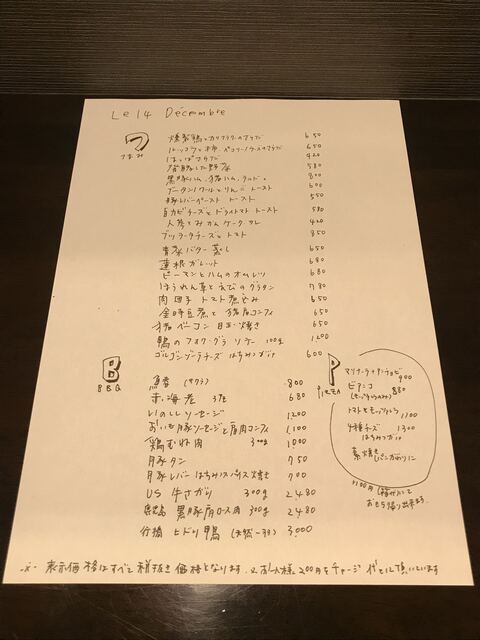 Le 14 Décembre
つ
つまみ
燻製鴨とカリフラワーのサラダ 650
ルッコラと柿、ペコリーノチーズのサラダ 650
はっぱサラダ 420
発酵した野菜 580
黒豚ハム、猪ハム 800
ブータンノワールとりんご トースト 600
豚レバーペースト トースト 550
白カビチーズとドライトマト トースト 580
人参とみかん ケークサレ 420
ブッラータチーズとトマト 850
青菜バター蒸し 650
蓮根ガレット 680
ピーマンとハムのオムレツ 680
ほうれん草とえびのグラタン 780
肉団子 トマト煮込み 650
金時豆煮と 猪肩コンフィ 650
猪ベーコン 目玉焼き 650
鴨のフォアグラ ソテー 100g 1200
ゴルゴンゾーラチーズ はちみつがけ 600
B
BBQ
魚 800
赤海老 3尾 680
いのししソーセージ 1200
おいも豚ソーセージと肩肉コンフィ 1100
鶏むね肉 300g 1000
豚タン 750
豚レバー はちみつスパイス焼き 700
US 牛さがり 300g 2,480
黒豚肩ロース肉 300g 2,480
行橋 ヒドリ鴨 3,000
P
PIZZA
マリナーラ+アンチョビ 900
ビアンコ 880
トマトともっつぁれら 1100
4種チーズ 1300
はちみつがけ
素焼き
パンがわりに
+100円 箱代にて
お持ち帰り出来ます。
-※- 表示価格はすべて税抜き価格となります。又お1人様200円をチャージ代として頂いています